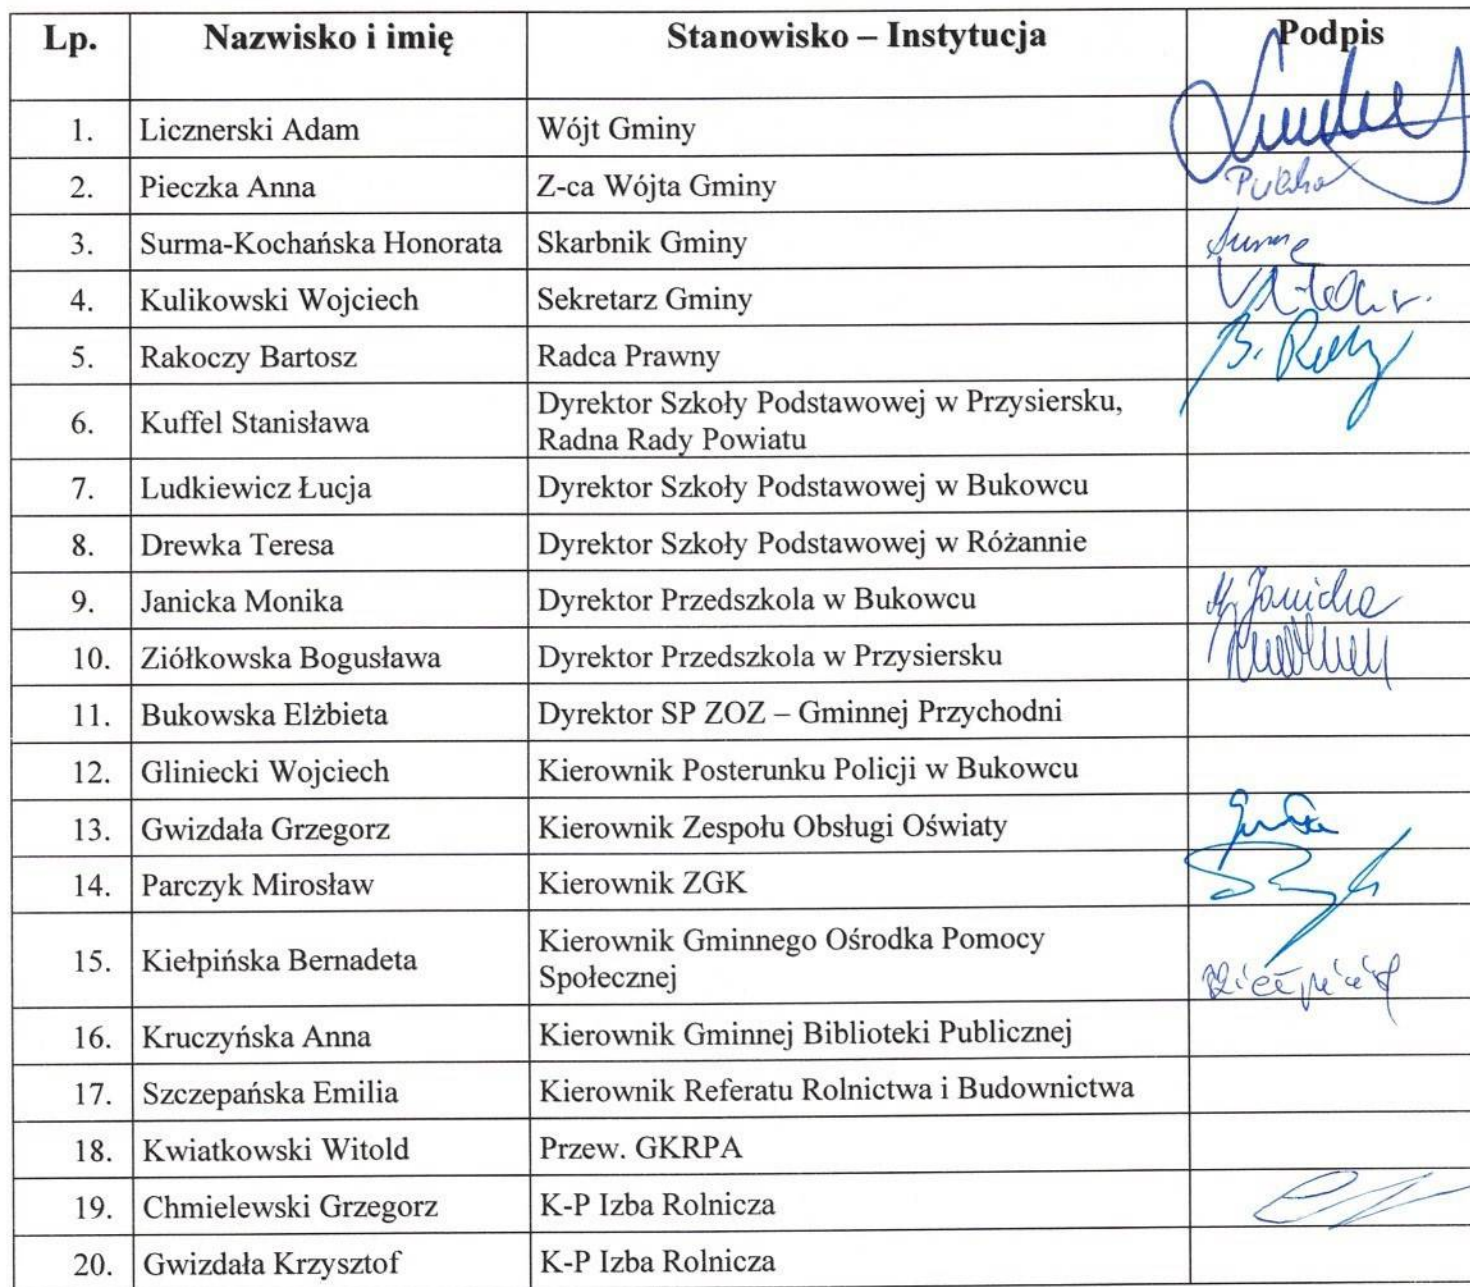 Lp. Nazwisko i imię Stanowisko – Instytucja Podpis
1. Licznerski Adam Wójt Gminy
2. Pieczka Anna Z-ca Wójta Gminy
3. Surma-Kochańska Honorata Skarbnik Gminy
4. Kulikowski Wojciech Sekretarz Gminy
5. Rakoczy Bartosz Radca Prawny
6. Kuffel Stanisława Dyrektor Szkoły Podstawowej w Przysiersku,
Radna Rady Powiatu
7. Ludkiewicz Łucja Dyrektor Szkoły Podstawowej w Bukowcu
8. Drewka Teresa Dyrektor Szkoły Podstawowej w Różannie
9. Janicka Monika Dyrektor Przedszkola w Bukowcu M Janicka
10. Ziółkowska Bogusława Dyrektor Przedszkola w Przysiersku
11. Bukowska Elżbieta Dyrektor SP ZOZ – Gminnej Przychodni
12. Gliniecki Wojciech Kierownik Posterunku Policji w Bukowcu
13. Gwizdała Grzegorz Kierownik Zespołu Obsługi Oświaty
14. Parczyk Mirosław Kierownik ZGK
15. Kiełpińska Bernadeta Kierownik Gminnego Ośrodka Pomocy
Społecznej
16. Kruczyńska Anna Kierownik Gminnej Biblioteki Publicznej
17. Szczepańska Emilia Kierownik Referatu Rolnictwa i Budownictwa
18. Kwiatkowski Witold Przew. GKRPA
19. Chmielewski Grzegorz K-P Izba Rolnicza
20. Gwizdała Krzysztof K-P Izba Rolnicza